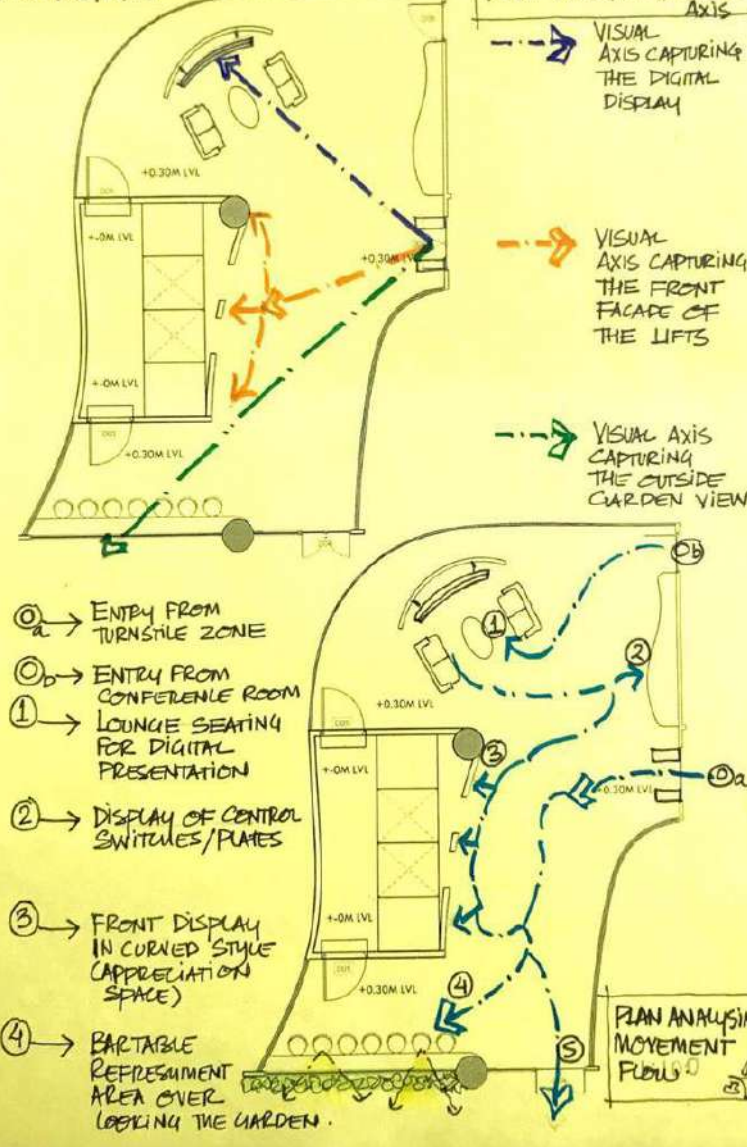 AXIS
VISUAL
AXIS CAPTURING
THE DIGITAL
DISPLAY
+0.30M LVL
+-0M LVL
+0.30M LVL
+-0M LVL
+0.30M LVL
VISUAL
AXIS CAPTURING
THE FRONT
FACADE OF
THE LIFTS
VISUAL AXIS
CAPTURING
THE OUTSIDE
GARDEN VIEW
0a → ENTRY FROM
TURNSTILE ZONE
0b → ENTRY FROM
CONFERENCE ROOM
1 → LOUNGE SEATING
FOR DIGITAL
PRESENTATION
2 → DISPLAY OF CONTROL
SWITCHES/PLATES
3 → FRONT DISPLAY
IN CURVED STYLE
(APPRECIATION
SPACE)
4 → BARTABLE
REFRESHMENT
AREA OVER
LOOKING THE GARDEN.
0b
1
2
+0.30M LVL
3
+-0M LVL
0a
+0.30M LVL
+-0M LVL
+0.30M LVL
4
5
PLAN ANALYSIN
MOVEMENT
FLOW